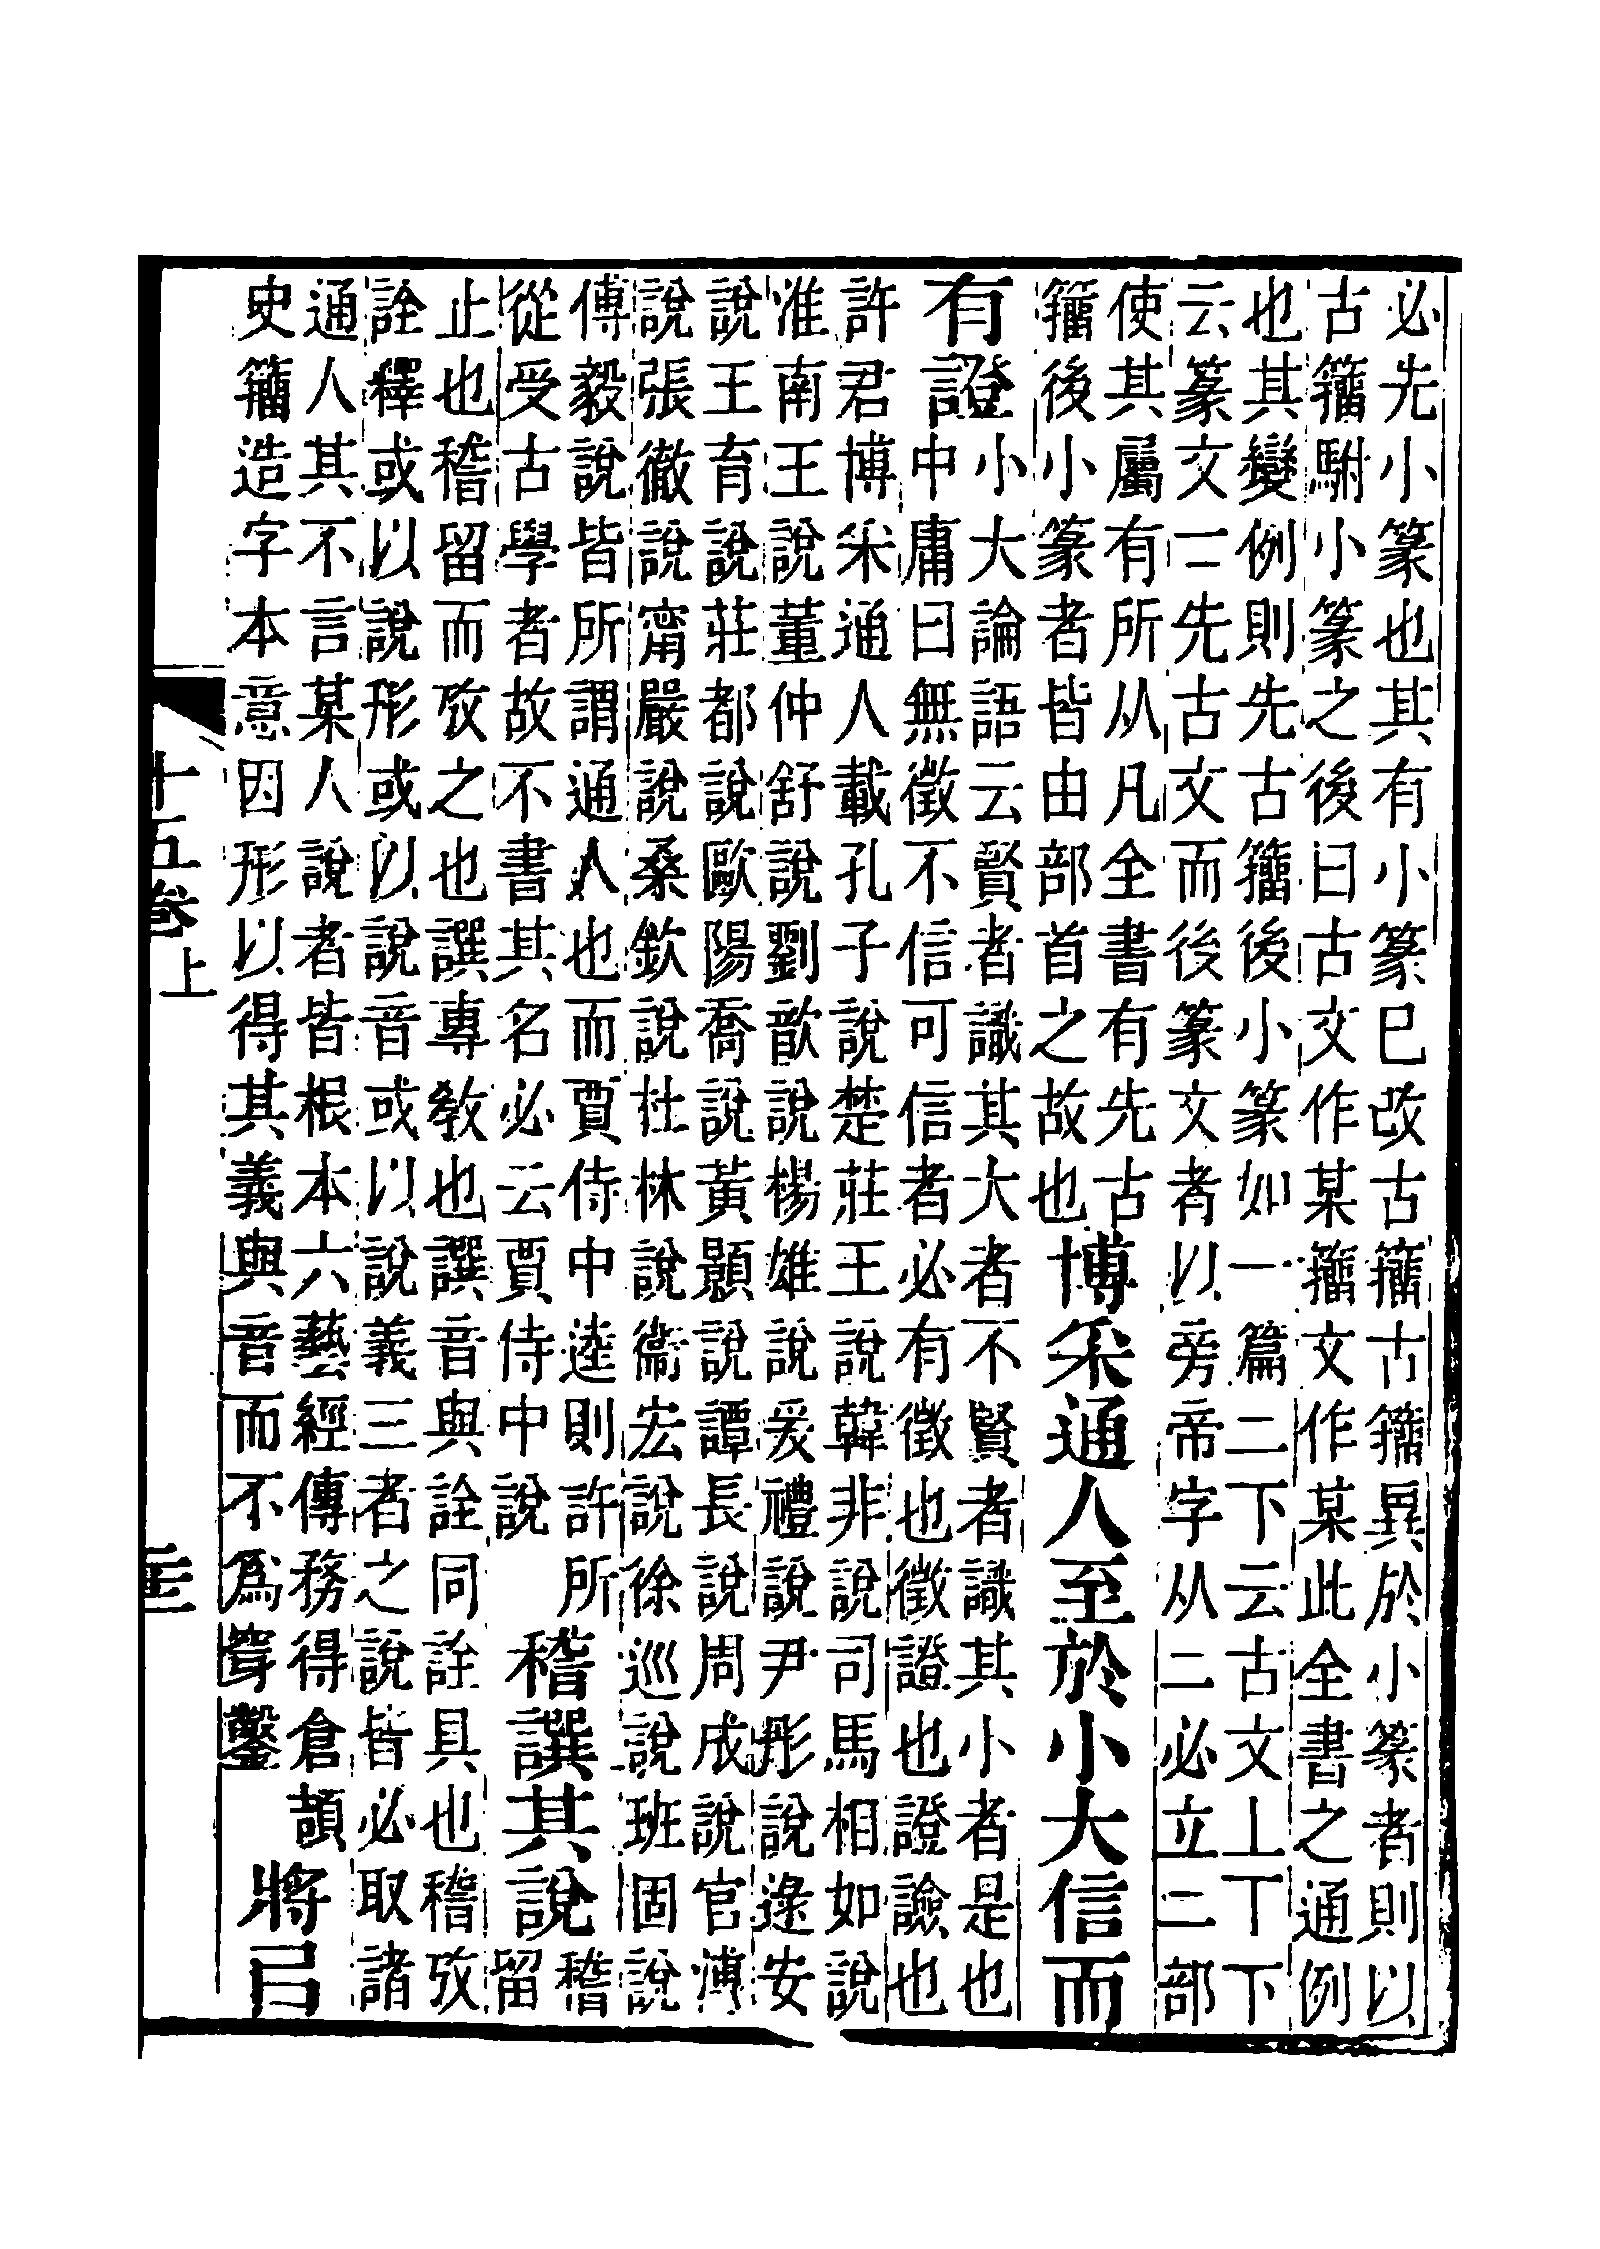 必先小篆也其有小篆巳改古籒古籒異於小篆者則以
古籒駙小篆之後曰古文作某籒文作某此全書之通例
也其變例則先古籒後小篆如一篇二下云古文上丅下
云篆文二先古文而後篆文者以旁帝字从二必立二部
使其屬有所从凡全書有先古
籒後小篆者皆由部首之故也
博采通人至於小大信而
有證
小大論語云賢者識其大者不賢者識其小者是也
中庸曰無徵不信可信者必有徵也徵證也證譣也
許君博采通人載孔子說楚莊王說韓非說司馬相如說
淮南王說董仲舒說劉歆說楊雄說爰禮說尹彤說逯安
說王育說莊都說歐陽喬說黃顥說譚長說周成說官溥
說張徹說甯嚴說桑欽說杜林說衞宏說徐巡說班固說
傅毅說皆所謂通人也而賈侍中逵則許所
從受古學者故不書其名必云賈侍中說
稽譔其說
稽
留
止也稽留而攷之也譔專教也譔音與詮同詮具也稽攷
詮釋或以說形或以說音或以說義三者之說皆必取諸
通人其不言某人說者皆根本六藝經傳務得倉頡
史籒造字本意因形以得其義與音而不爲穿鑿
將㠯
十五卷上